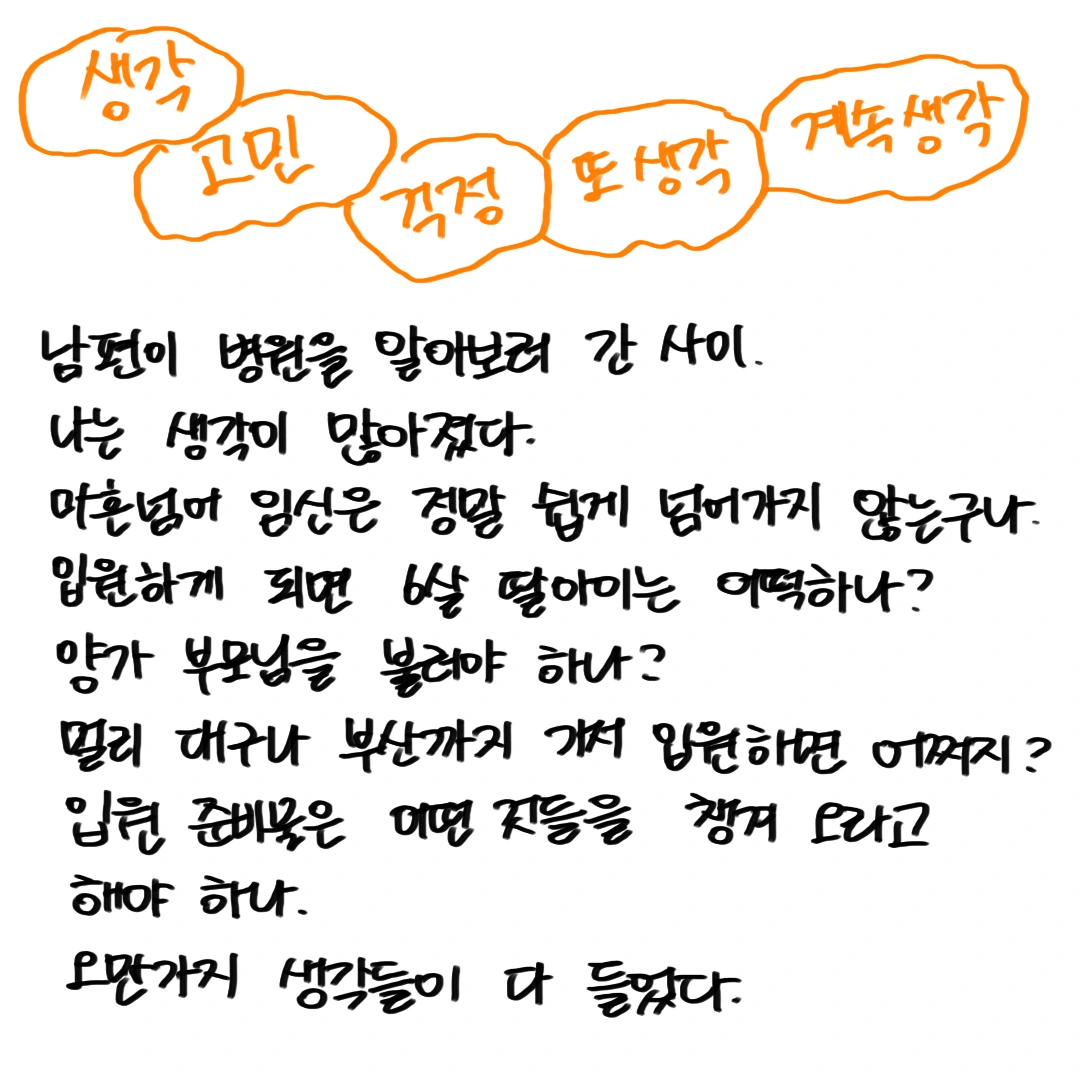 생각
고민
걱정
또 생각
계속 생각
남편이 병원을 알아보러 간 사이.
나는 생각이 많아졌다.
마흔넘어 임신은 정말 쉽게 넘어가지 않는구나.
입원하게 되면 6살 딸아이는 어떡하나?
양가 부모님을 불러야 하나?
멀리 대구나 부산까지 가서 입원하면 어쩌지?
입원 준비물은 어떤 것들을 챙겨 오라고
해야 하나.
오만가지 생각들이 다 들었다.